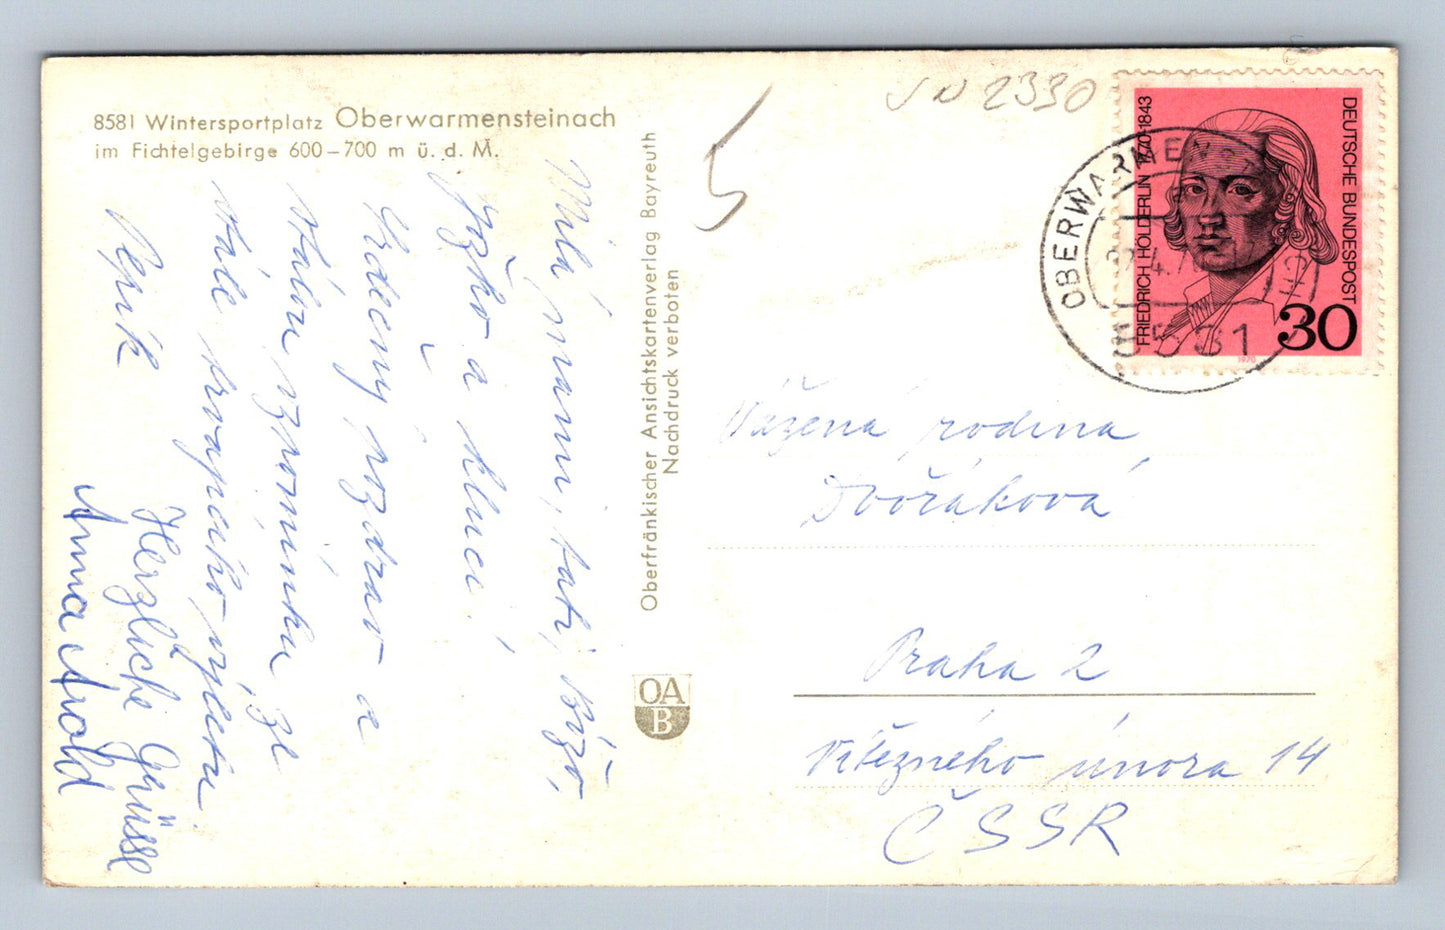 8581 Wintersportplatz Oberwarmensteinach
im Fichtelgebirge 600–700 m ü. d. M.
Milá mami, tati, Bížo,
Jožko a kluci!
Srdečný pozdrav a
stálou vzpomínku ze
stále trvajícího výletu
Pepík
Herzliche Grüsse
Anna Arold
Oberfränkischer Ansichtskartenverlag Bayreuth
Nachdruck verboten
OA
B
5
2330
FRIEDRICH HÖLDERLIN 1770-1843
DEUTSCHE BUNDESPOST
30
1970
OBERWARMEN
Vážená rodina
Dvořáková
Praha 2
Vítězného února 14
ČSSR